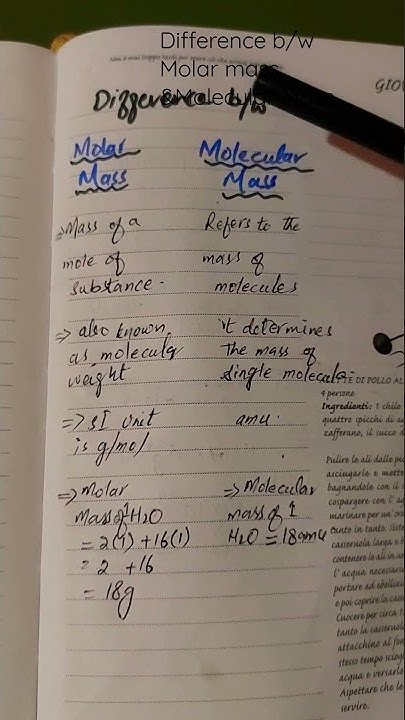 Difference b/w
Molar mass
&Molecular
Difference b/w
Molar
Mass
Molecular
Mass
⇒Mass of a
mole of
substance.
Refers to the
mass of
molecules
⇒ also known
as molecular
weight
it determines
the mass of
single molecule.
⇒ SI Unit
is g/mol
amu.
⇒ Molar
Mass of 1 H₂O
= 2(1) + 16(1)
= 2 + 16
= 18g
⇒ Molecular
mass of 1
H₂O = 18amu
GIO
TE DI POLLO AL
4 persone
Ingredienti: 1 chilo
quattro spicchi di a
zafferano, il succo d
Pulire le ali dalle pi
asciugarle e mette
bagnandole con il
cospargere con l'a
marinare per un'or
Tanto in tanto.
casseruola larga e b
contenere le ali in u
l'acqua necessaria
portare ad ebollizio
e poi coprire la casse
Cuocere per circa
tanto la casseruol
attacchino al fon
stesso tempo sciog
acqua e versarlo
Aspettare che le
servire.